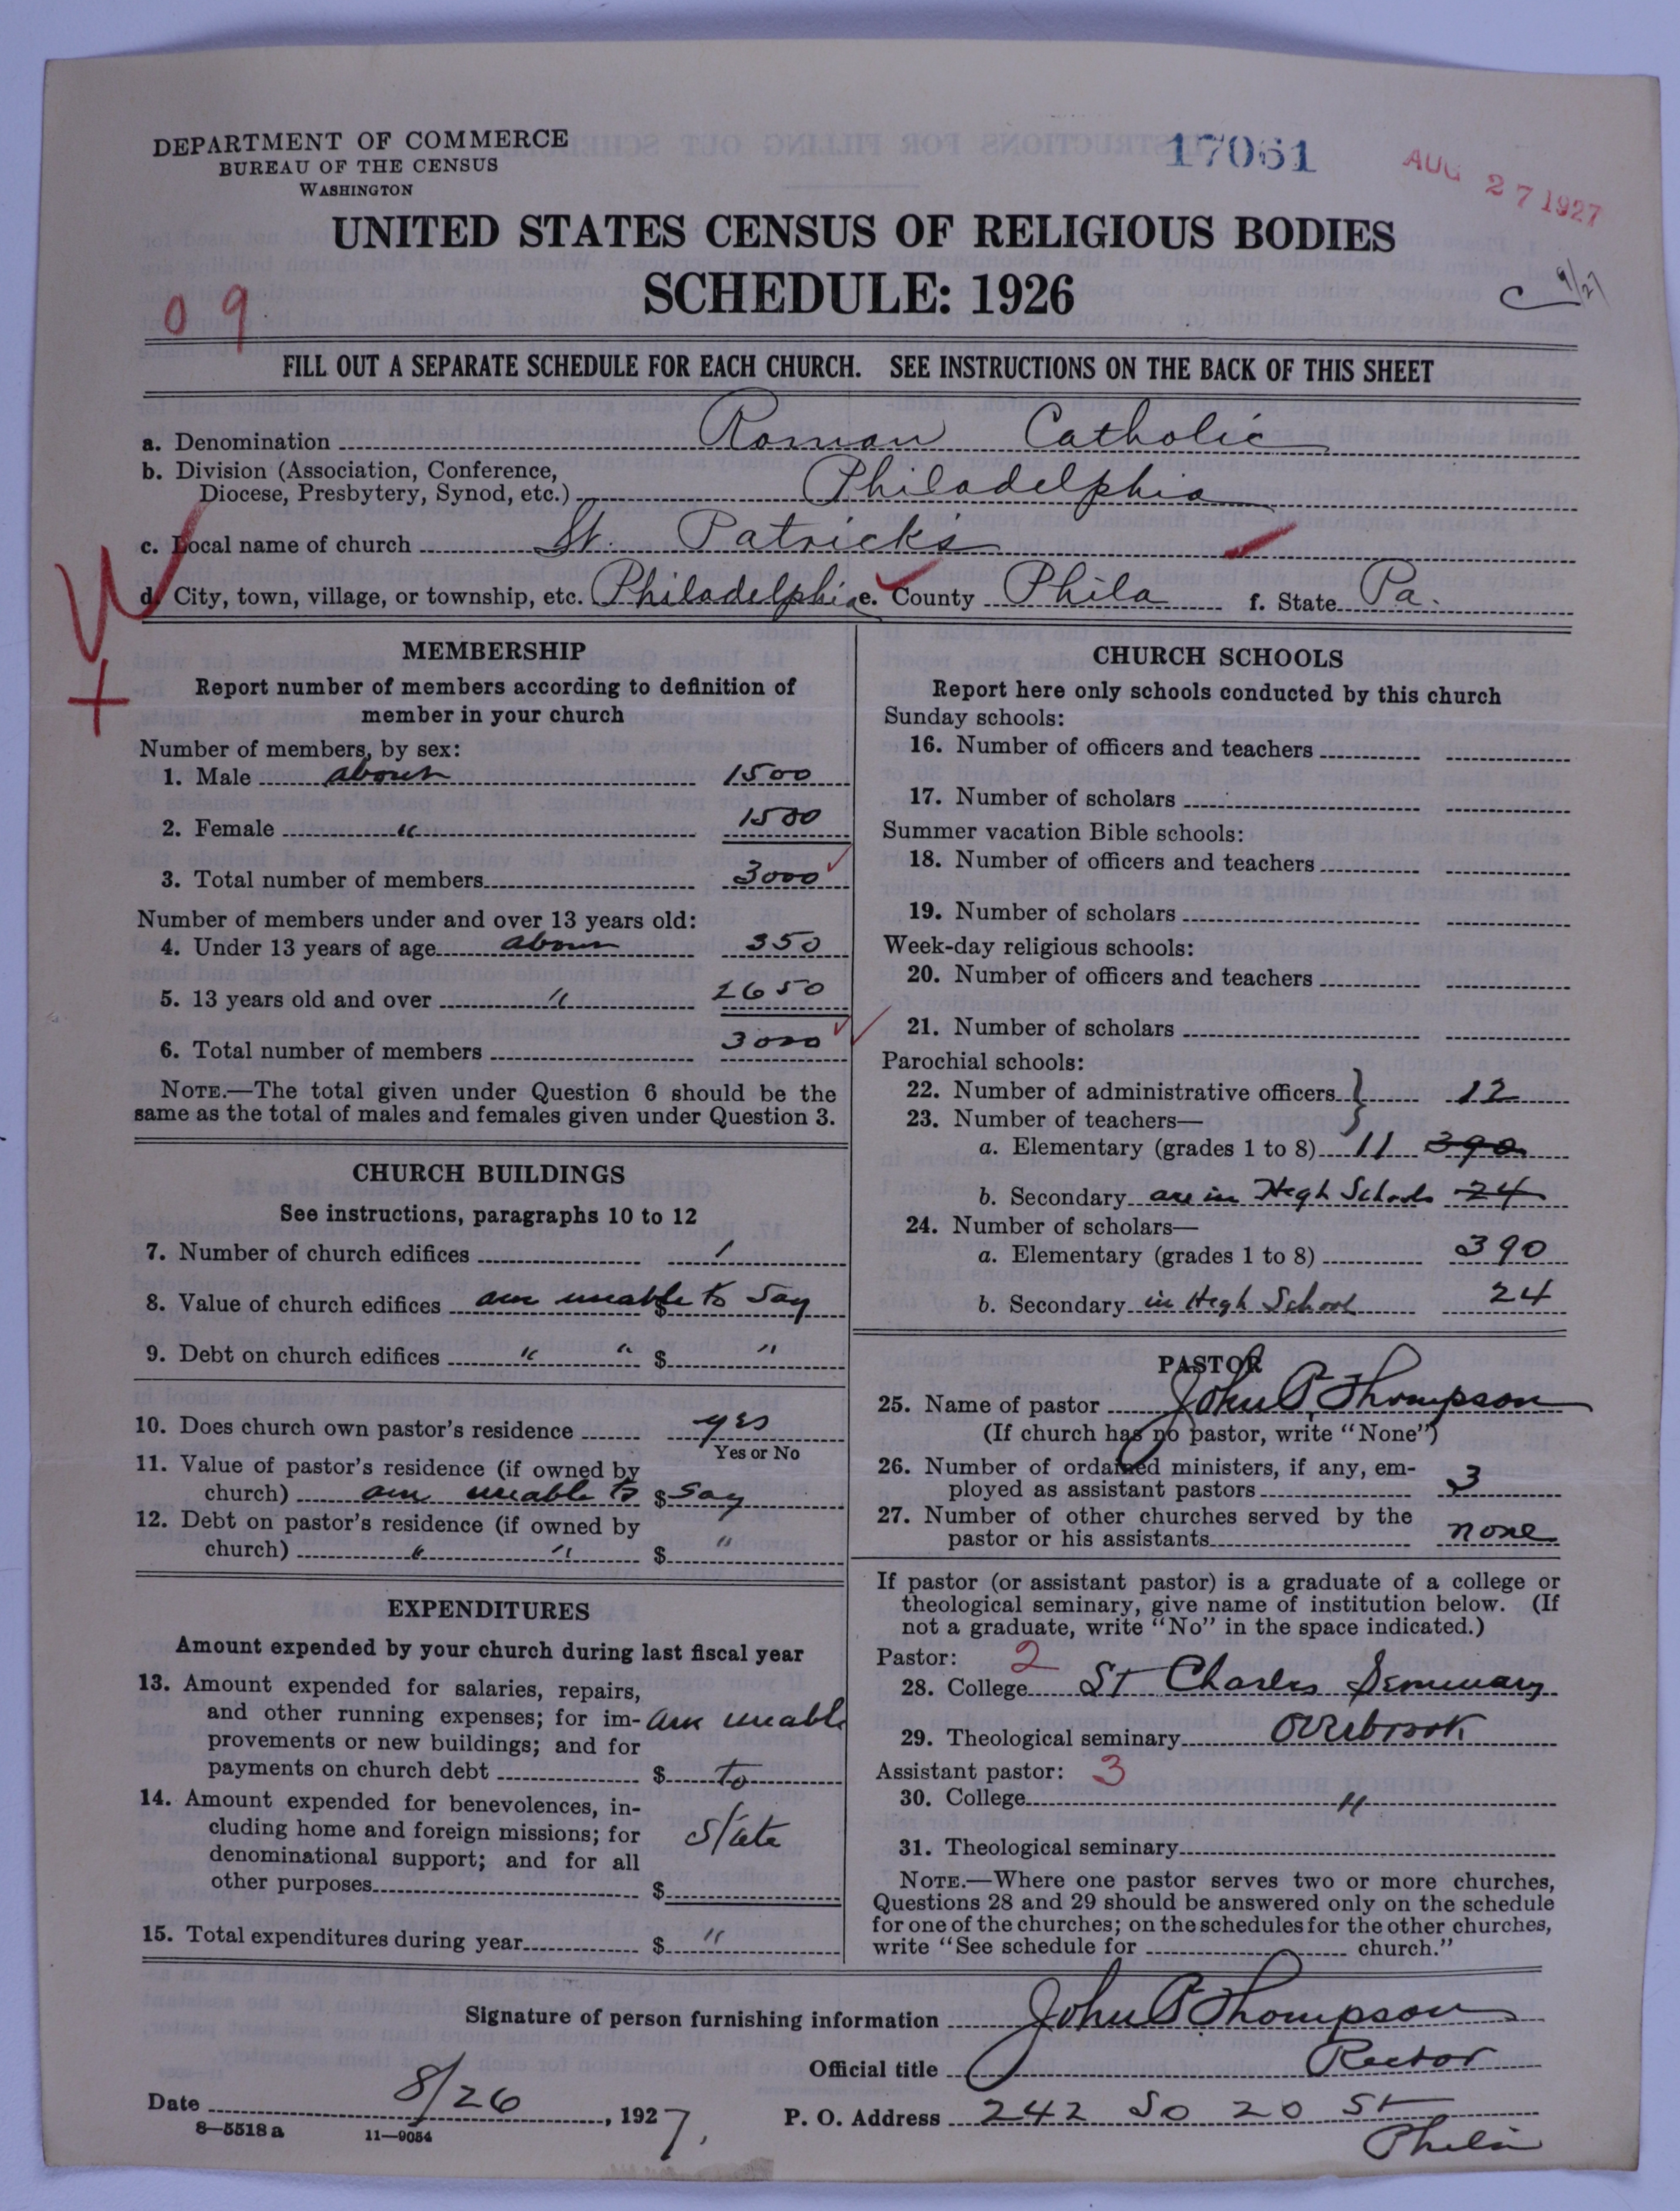 DEPARTMENT OF COMMERCE
BUREAU OF THE CENSUS
WASHINGTON
17061
AUG 27 1927
UNITED STATES CENSUS OF RELIGIOUS BODIES
SCHEDULE: 1926
09
C 9/27
FILL OUT A SEPARATE SCHEDULE FOR EACH CHURCH. SEE INSTRUCTIONS ON THE BACK OF THIS SHEET
a. Denomination Roman Catholic
b. Division (Association, Conference,
Diocese, Presbytery, Synod, etc.) Philadelphia
c. Local name of church St. Patrick's
d. City, town, village, or township, etc. Philadelphia e. County Phila f. State Pa.
W
+
MEMBERSHIP
Report number of members according to definition of
member in your church
Number of members, by sex:
1. Male about 1500
2. Female " 1500
3. Total number of members 3000
Number of members under and over 13 years old:
4. Under 13 years of age about 350
5. 13 years old and over " 2650
6. Total number of members 3000
NOTE.—The total given under Question 6 should be the
same as the total of males and females given under Question 3.
CHURCH BUILDINGS
See instructions, paragraphs 10 to 12
7. Number of church edifices 1
8. Value of church edifices am unable to $ say
9. Debt on church edifices " " $ "
10. Does church own pastor's residence yes
Yes or No
11. Value of pastor's residence (if owned by
church) am unable to $ say
12. Debt on pastor's residence (if owned by
church) " " $ "
EXPENDITURES
Amount expended by your church during last fiscal year
13. Amount expended for salaries, repairs,
and other running expenses; for im- am unable
provements or new buildings; and for
payments on church debt $ to
14. Amount expended for benevolences, in-
cluding home and foreign missions; for state
denominational support; and for all
other purposes $
15. Total expenditures during year $ "
CHURCH SCHOOLS
Report here only schools conducted by this church
Sunday schools:
16. Number of officers and teachers
17. Number of scholars
Summer vacation Bible schools:
18. Number of officers and teachers
19. Number of scholars
Week-day religious schools:
20. Number of officers and teachers
21. Number of scholars
Parochial schools:
22. Number of administrative officers } 12
23. Number of teachers—
a. Elementary (grades 1 to 8) 11 390
b. Secondary are in High Schools 24
24. Number of scholars—
a. Elementary (grades 1 to 8) 390
b. Secondary in High School 24
PASTOR
25. Name of pastor John P Thompson
(If church has no pastor, write "None")
26. Number of ordained ministers, if any, em-
ployed as assistant pastors 3
27. Number of other churches served by the
pastor or his assistants none
If pastor (or assistant pastor) is a graduate of a college or
theological seminary, give name of institution below. (If
not a graduate, write "No" in the space indicated.)
Pastor: 2
28. College St Charles Seminary
29. Theological seminary Overbrook
Assistant pastor: 3
30. College "
31. Theological seminary
NOTE.—Where one pastor serves two or more churches,
Questions 28 and 29 should be answered only on the schedule
for one of the churches; on the schedules for the other churches,
write "See schedule for church."
Signature of person furnishing information John P Thompson
Official title Rector
Date 8/26, 1927. P. O. Address 242 So 20 St
Phila
8—5518a 11—9054